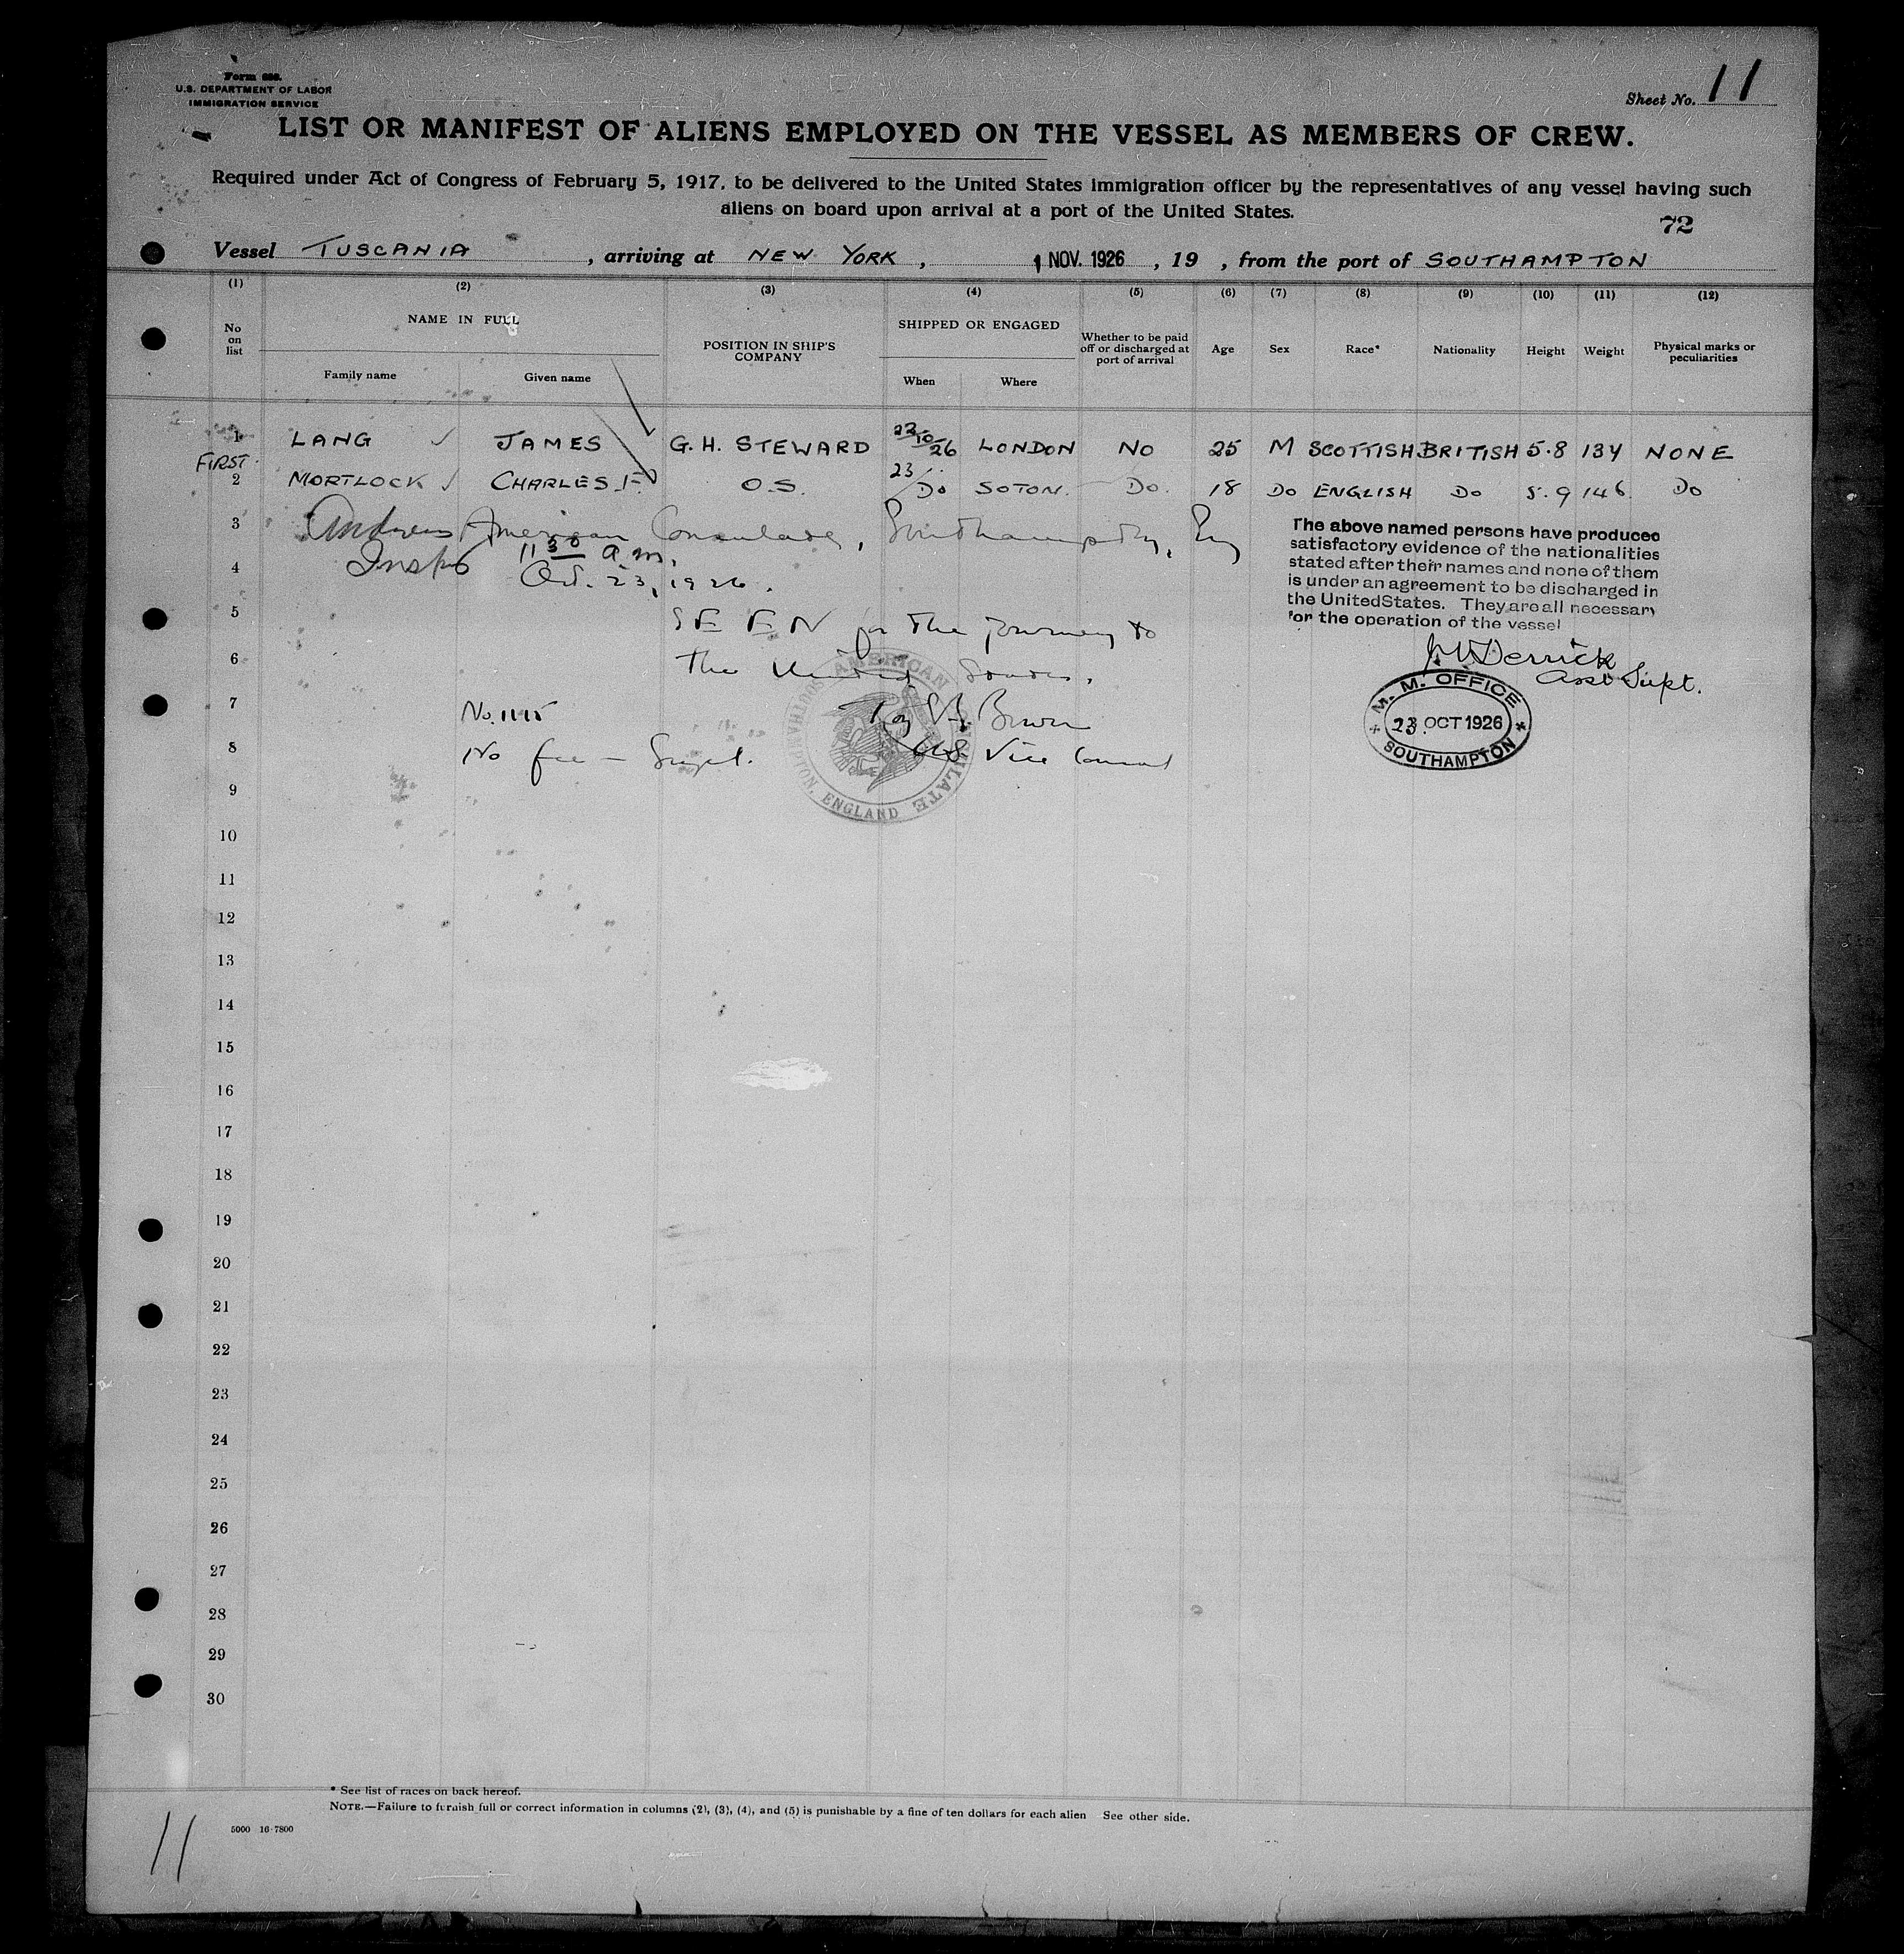 Form 688.
U.S. DEPARTMENT OF LABOR
IMMIGRATION SERVICE
Sheet No. 11
LIST OR MANIFEST OF ALIENS EMPLOYED ON THE VESSEL AS MEMBERS OF CREW.
Required under Act of Congress of February 5, 1917, to be delivered to the United States immigration officer by the representatives of any vessel having such
aliens on board upon arrival at a port of the United States.
72
Vessel TUSCANIA, arriving at NEW YORK, 1 NOV. 1926, 19 , from the port of SOUTHAMPTON
(1) (2) (3) (4) (5) (6) (7) (8) (9) (10) (11) (12)
No on list NAME IN FULL Family name Given name POSITION IN SHIP'S COMPANY SHIPPED OR ENGAGED When Where Whether to be paid off or discharged at port of arrival Age Sex Race* Nationality Height Weight Physical marks or peculiarities
1 LANG JAMES G. H. STEWARD 22/10/26 LONDON NO 25 M SCOTTISH BRITISH 5.8 134 NONE
FIRST
2 MORTLOCK CHARLES F. O.S. 23/ Do SOTON. Do. 18 Do ENGLISH Do 5.9 146 Do
3 Andrews American Consulate, Southampton, Eng
Insptr 11 30 a.m.
4 Oct. 23, 1926.
The above named persons have produced
satisfactory evidence of the nationalities
stated after their names and none of them
is under an agreement to be discharged in
the United States. They are all necessary
for the operation of the vessel
5 SEEN for the journey to
6 the United States.
Derrick
Asst Supt.
7 No. 1115 Roy Brown
8 No fee - Supl. U.S. Vice Consul
AMERICAN CONSULATE SOUTHAMPTON, ENGLAND
M. M. OFFICE
23 OCT 1926
SOUTHAMPTON
9
10
11
12
13
14
15
16
17
18
19
20
21
22
23
24
25
26
27
28
29
30
* See list of races on back hereof.
NOTE.—Failure to furnish full or correct information in columns (2), (3), (4), and (5) is punishable by a fine of ten dollars for each alien See other side.
5000 16-7800
11